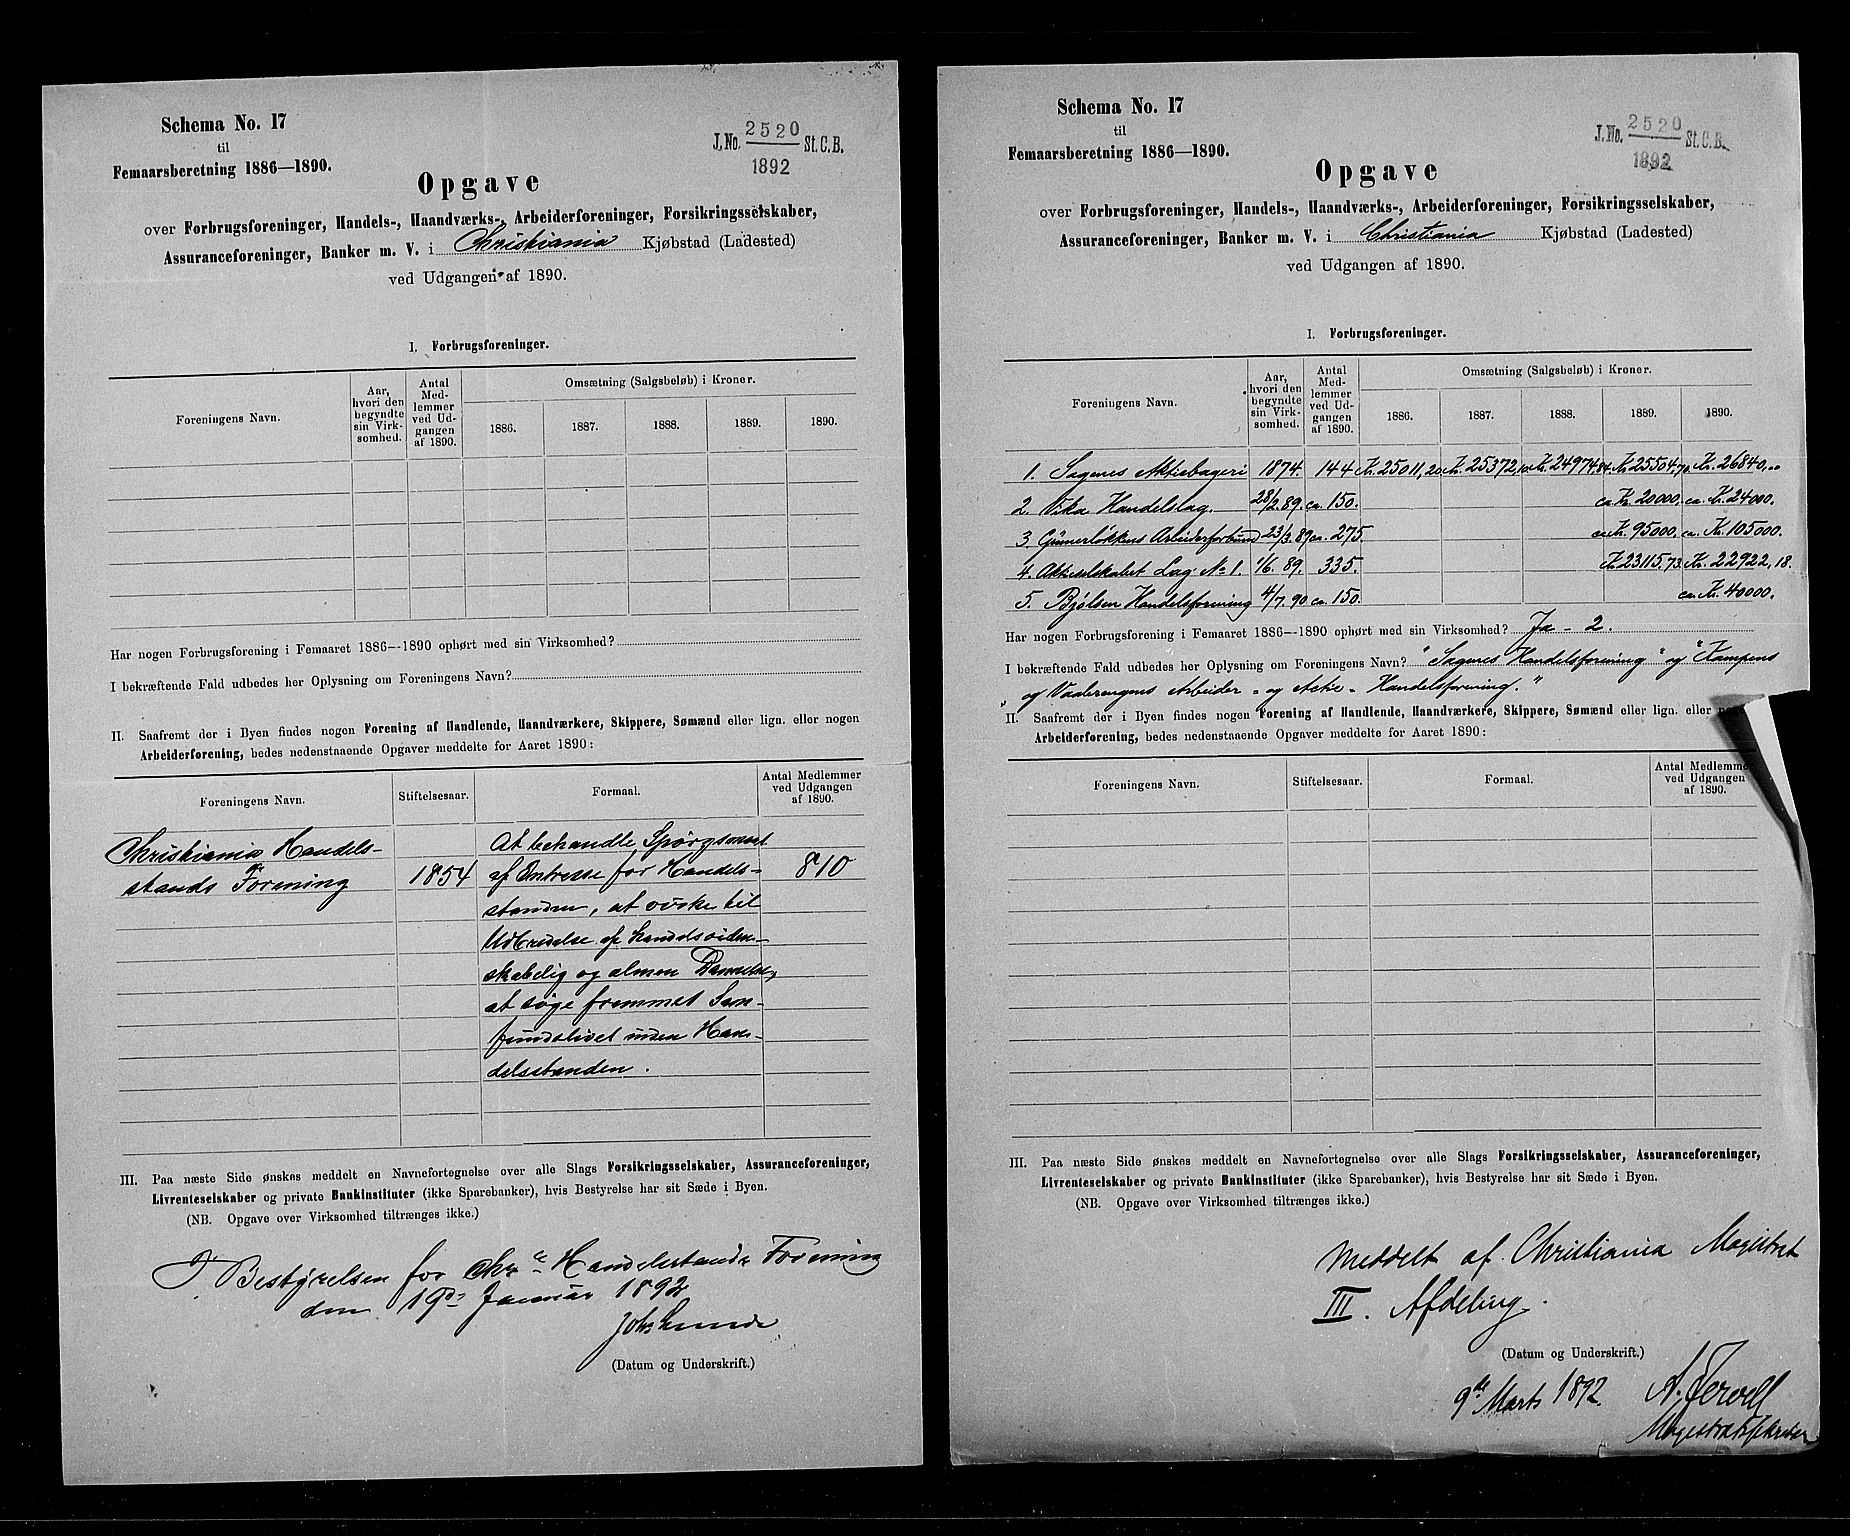 Schema No. 17
til
Femaarsberetning 1886—1890.
J. No. 2520 St. C. B.
1892
Opgave
over Forbrugsforeninger, Handels-, Haandværks-, Arbeiderforeninger, Forsikringsselskaber,
Assuranceforeninger, Banker m. V. i Christiania Kjøbstad (Ladested)
ved Udgangen af 1890.
I. Forbrugsforeninger.
Foreningens Navn.
Aar, hvori den begyndte sin Virksomhed.
Antal Medlemmer ved Udgangen af 1890.
Omsætning (Salgsbeløb) i Kroner.
1886. 1887. 1888. 1889. 1890.
Har nogen Forbrugsforening i Femaaret 1886—1890 ophørt med sin Virksomhed?
I bekræftende Fald udbedes her Oplysning om Foreningens Navn?
II. Saafremt der i Byen findes nogen Forening af Handlende, Haandværkere, Skippere, Sømænd eller lign. eller nogen
Arbeiderforening, bedes nedenstaaende Opgaver meddelte for Aaret 1890:
Foreningens Navn. Stiftelsesaar. Formaal. Antal Medlemmer ved Udgangen af 1890.
Christiania Handels-
stands Forening 1854 810
At behandle Spørgsmaal
af Interesse for Handels-
standen, at virke til
Udbredelse af handelsviden-
skabelig og almen Dannelse,
at søge fremmet Sam-
fundslivet inden Han-
delsstanden.
III. Paa næste Side ønskes meddelt en Navnefortegnelse over alle Slags Forsikringsselskaber, Assuranceforeninger,
Livrenteselskaber og private Bankinstituter (ikke Sparebanker), hvis Bestyrelse har sit Sæde i Byen.
(NB. Opgave over Virksomhed tiltrænges ikke.)
I Bestyrelsen for Chra Handelsstands Forening
den 19de Januar 1892
Johs Lunde
(Datum og Underskrift.)
Schema No. 17
til
Femaarsberetning 1886—1890.
J. No. 2520 St. C. B.
1892
Opgave
over Forbrugsforeninger, Handels-, Haandværks-, Arbeiderforeninger, Forsikringsselskaber,
Assuranceforeninger, Banker m. V. i Christiania Kjøbstad (Ladested)
ved Udgangen af 1890.
I. Forbrugsforeninger.
Foreningens Navn.
Aar, hvori den begyndte sin Virksomhed.
Antal Medlemmer ved Udgangen af 1890.
Omsætning (Salgsbeløb) i Kroner.
1886. 1887. 1888. 1889. 1890.
1. Sagenes Aktiebageri 1874. 144 Kr. 25011,20 Kr. 25372,10 Kr. 24974,84 Kr. 25504,70 Kr. 26840,00
2. Vika Handelslag. 28/2.89. ca. 150. ca. Kr. 20000. ca. Kr. 24000.
3. Grünerløkkens Arbeiderforbund 23/3.89 ca. 275. ca. Kr. 95000. ca. Kr. 105000.
4. Aktieselskabet Lag No 1. 1/6.89. 335. Kr. 23115,73. Kr. 22922,18.
5. Bjølsen Handelsforening 4/7.90 ca. 150. ca. Kr. 40000.
Har nogen Forbrugsforening i Femaaret 1886—1890 ophørt med sin Virksomhed? Ja - 2.
I bekræftende Fald udbedes her Oplysning om Foreningens Navn? "Sagenes Handelsforening" og "Kampens
„og Vaalerengens Arbeider- og Actie-Handelsforening."
II. Saafremt der i Byen findes nogen Forening af Handlende, Haandværkere, Skippere, Sømænd eller lign. eller nogen
Arbeiderforening, bedes nedenstaaende Opgaver meddelte for Aaret 1890:
Foreningens Navn. Stiftelsesaar. Formaal. Antal Medlemmer ved Udgangen af 1890.
III. Paa næste Side ønskes meddelt en Navnefortegnelse over alle Slags Forsikringsselskaber, Assuranceforeninger,
Livrenteselskaber og private Bankinstituter (ikke Sparebanker), hvis Bestyrelse har sit Sæde i Byen.
(NB. Opgave over Virksomhed tiltrænges ikke.)
Meddelt af Christiania Magistrat
III. Afdeling.
(Datum og Underskrift.)
9de Marts 1892.
Magistratssekretær